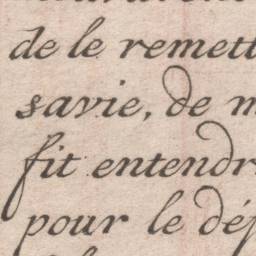 de le remett
savie, de m
fit entendr
pour le dép